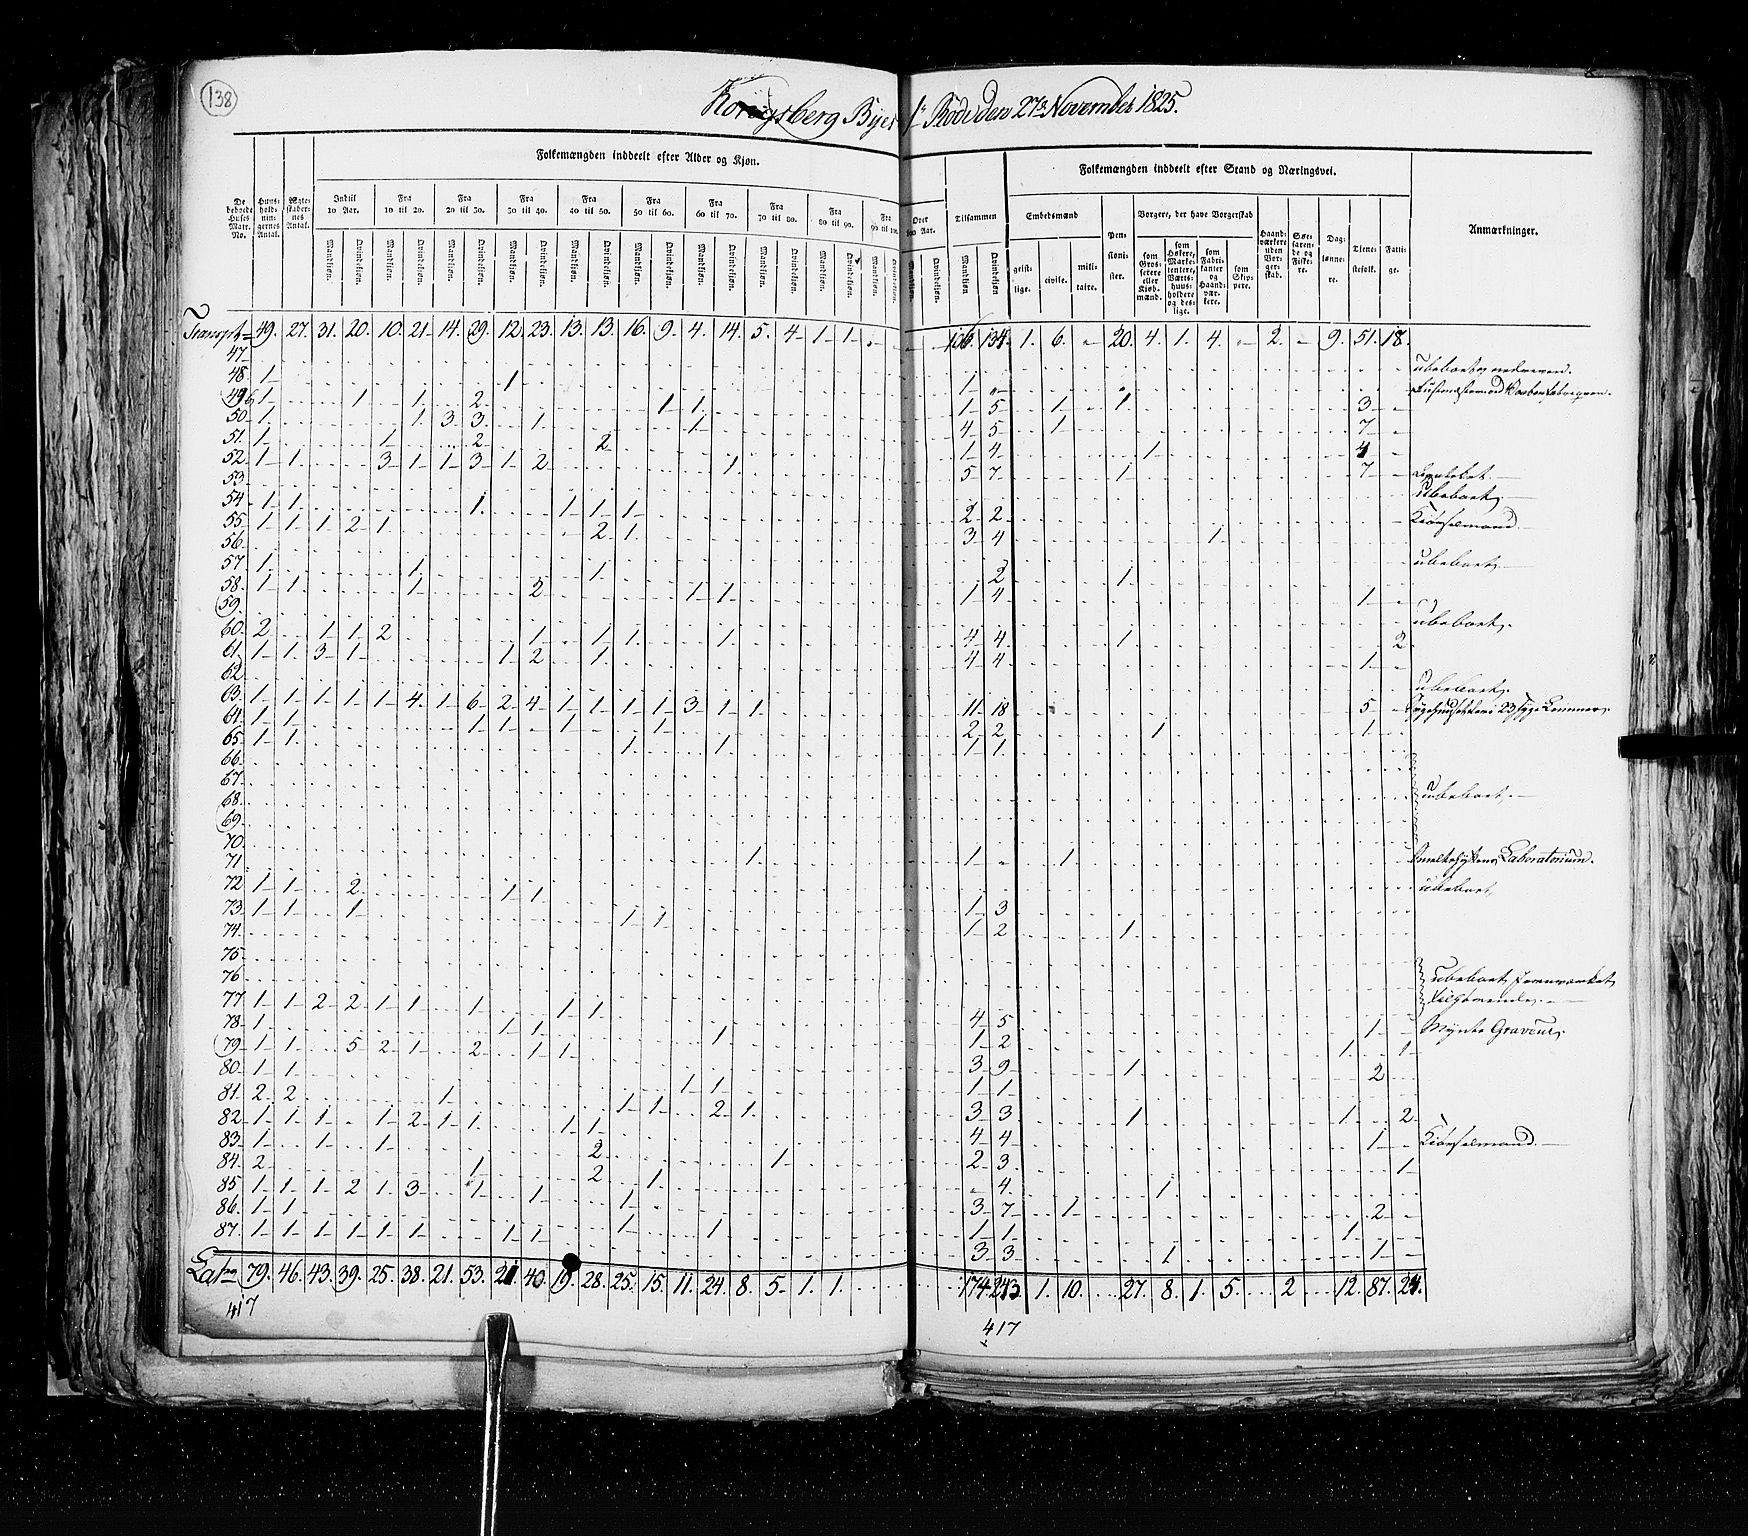 138
Kongsberg Byes 1ste Rode den 27de November 1825.
Folkemængden inddeelt efter Alder og Kjøn.
Folkemængden inddeelt efter Stand og Næringsvei.
De beboede Huses Matr. No.
Huusholdningernes Antal.
Ægteskabernes Antal.
Indtil 10 Aar.
Fra 10 til 20.
Fra 20 til 30.
Fra 30 til 40.
Fra 40 til 50.
Fra 50 til 60.
Fra 60 til 70.
Fra 70 til 80.
Fra 80 til 90.
Fra 90 til 100.
Over 100 Aar.
Tilsammen
Embedsmænd
Borgere, der have Borgerskab
Mandkjøn. Qvindekjøn.
geistlige. civile. militaire.
Pensionister.
som Grosserere eller Kjøbmænd.
som Høkere, Marketentere, Værtshuusholdere og deslige.
som Fabrikanter og Haandværkere.
som Skippere.
Haandværkere uden Borgerskab.
Søefarende og Fiskere.
Daglønnere.
Tienestefolk.
Fattige.
Anmærkninger.
Transpt 49. 27. 31. 20. 10. 21. 14. 29. 12. 23. 13. 13. 16. 9. 4. 14. 5. 4 1 1 136. 134. 1. 6. 20. 4. 1. 4. 2. 9. 51. 18.
47
48. 1 1 1
49 1 1 1 2 1 1 1 5 1 1 3
50. 1 1 3 3 1 1 4 5 1 7
51. 1 1 2 2 1 4 1 4
52 1 1 3 1 1 3 1 2 1 5 7 1 7
53. ubeboet
54 1 1 1 1 1 1 2 2 Kiørselmand
55 1 1 1 2 1 2 1 3 4 1
56. ubeboet
57 1 1 1 2 1
58. 1 1 1 2 1 1 1 4 1
59. ubeboet.
60. 2 1 1 2 1 1 1 1 4 4 1 2
61. 1 1 3 1 1 2 1 4 4 1
62 ubeboet.
63. 1 1 1 1 1 4 1 6 2 4 1 1 1 1 3 1 1 11 18 5
64 1 1 1 1 1 1 2 2 1 1
65 1 1 1 1 1 1
66
67.
68. ubeboet.
69
70.
71 1 1 1 Laboratorium.
ubeboet
72 1 1 2 1 1 1 3
73 1 1 1 1 1 1 2 1
74.
75
76. ubeboet
77 1 1 2 2 1 1 1 1 1 4 5 1 Mynte Graveur.
78. 1 1 1 1 1 2 1 1
79 1 1 5 2 1 2 1 1 3 9 1 2
80. 1 1 1 1 1 1
81. 2 2 1 1 1 2 1 3 3 1 1 2
82 1 1 1 1 2 1 1 1 1 4 4 1 Kiørselmand.
83. 1 1 1 2 1 2 3 1
84. 2 1 2 1 4. 1
85 1 1 1 2 1 3 1 1 1 3 7 1 2
86. 1 1 1 1 1 1
87. 1 1 1 1 1 1 1 1 1 3 3 1 1
Lat 79. 46. 43. 39. 25. 38. 21. 53. 21. 40. 19. 28. 25. 15. 11. 24. 8. 5 1. 1. 174 243. 1. 10. 27. 8. 1. 5. 2 12. 87. 24.
417
417